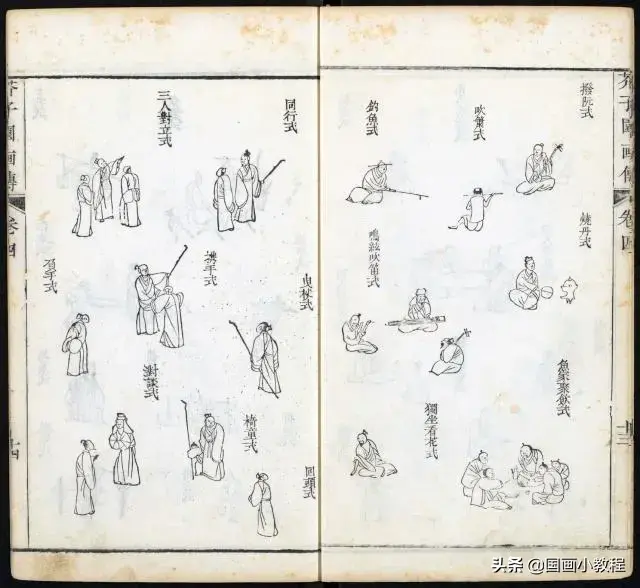 芥子園画傳
卷四
十三
撥阮式
吹簫式
釣魚式
燒丹式
鳴絃吹笛式
魚家聚飲式
獨坐看花式
同行式
三人對立式
携手式
曳杖式
對談式
椅童式
回頭式
芥子園画傳
卷四
十四
头条 @国画小教程